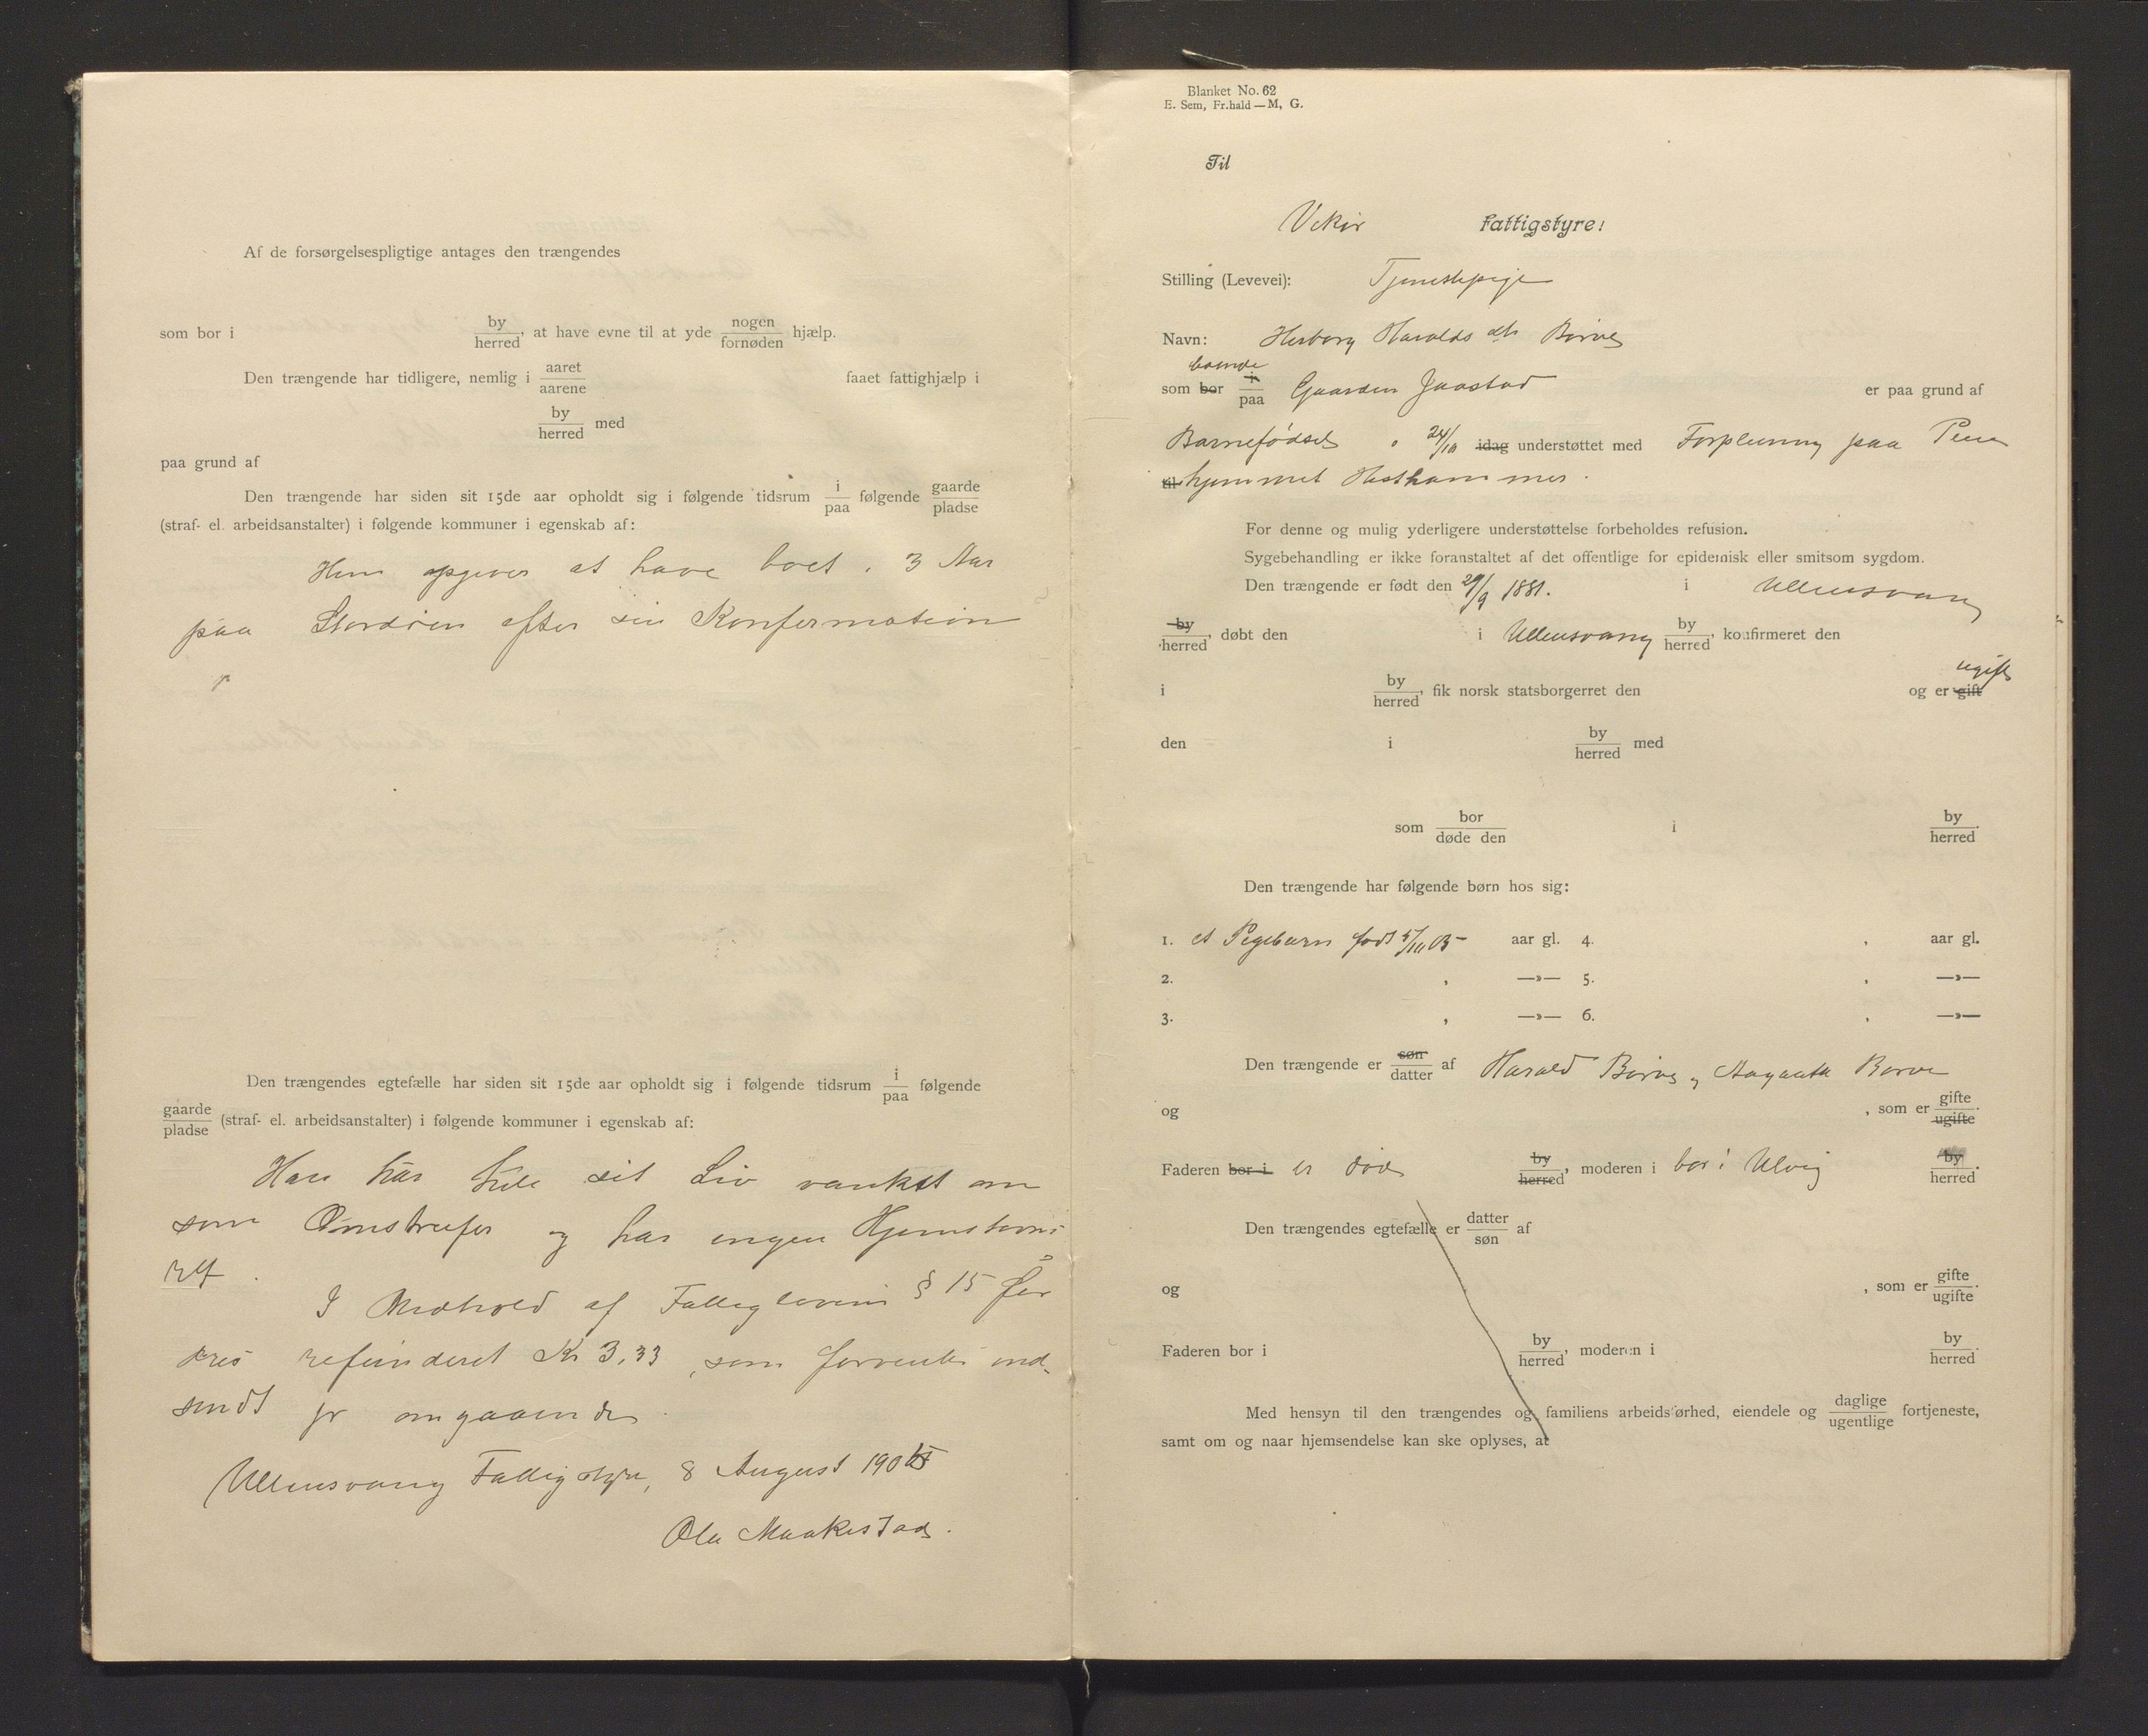 Af de forsørgelsespligtige antages den trængendes
som bor i by/herred, at have evne til at yde nogen/fornøden hjælp.
Den trængende har tidligere, nemlig i aaret/aarene faaet fattighjælp i
by/herred med
paa grund af
Den trængende har siden sit 15de aar opholdt sig i følgende tidsrum i/paa følgende gaarde/pladse
(straf- el. arbeidsanstalter) i følgende kommuner i egenskab af:
Hun opgiver at have boet i 3 Aar
paa Stordøen efter sin Konfermation
Den trængendes egtefælle har siden sit 15de aar opholdt sig i følgende tidsrum i/paa følgende
gaarde/pladse (straf- el. arbeidsanstalter) i følgende kommuner i egenskab af:
Han har hele sit Liv vanket om
som Omstreifer og har ingen Hjemstavns
ret.
I Medhold af Fattiglovens § 15 før
des refunderet Kr 3,33, som forventes ind-
sendt pr omgaaende.
Ullensvang Fattigstyre, 8 August 190
Ola Maakestad.
Blanket No. 62
E. Sem, Fr.hald — M, G.
Til
Vikør Fattigstyre!
Stilling (Levevei): Tjenestepige
Navn: Herborg Haralds dtr Børve
boende
som bor i/paa Gaarden Jaastad er paa grund af
Barnefødsel 24/10 idag understøttet med Forpleining paa Pleie
til hjemmet Hesthammer.
For denne og mulig yderligere understøttelse forbeholdes refusion.
Sygebehandling er ikke foranstaltet af det offentlige for epidemisk eller smitsom sygdom.
Den trængende er født den 29/9 1881. i Ullensvang
by/herred, døbt den i Ullensvang by/herred, konfirmeret den
ugift
i by/herred, fik norsk statsborgerret den og er gift
den i by/herred med
som bor/døde den i by/herred.
Den trængende har følgende børn hos sig:
1. et Pigebarn født 5/10 05 aar gl. 4. , aar gl.
2. , —»— 5. , —»—
3. , —»— 6. , —»—
Den trængende er søn/datter af Harald Børve og Aagaata Børve
og , som er gifte/ugifte.
Faderen bor i er død by/herred, moderen i bor i Ulvig by/herred.
Den trængendes egtefælle er datter/søn af
og , som er gifte/ugifte.
Faderen bor i by/herred, moderen i by/herred.
Med hensyn til den trængendes og familiens arbeidsførhed, eiendele og daglige/ugentlige fortjeneste,
samt om og naar hjemsendelse kan ske oplyses, at